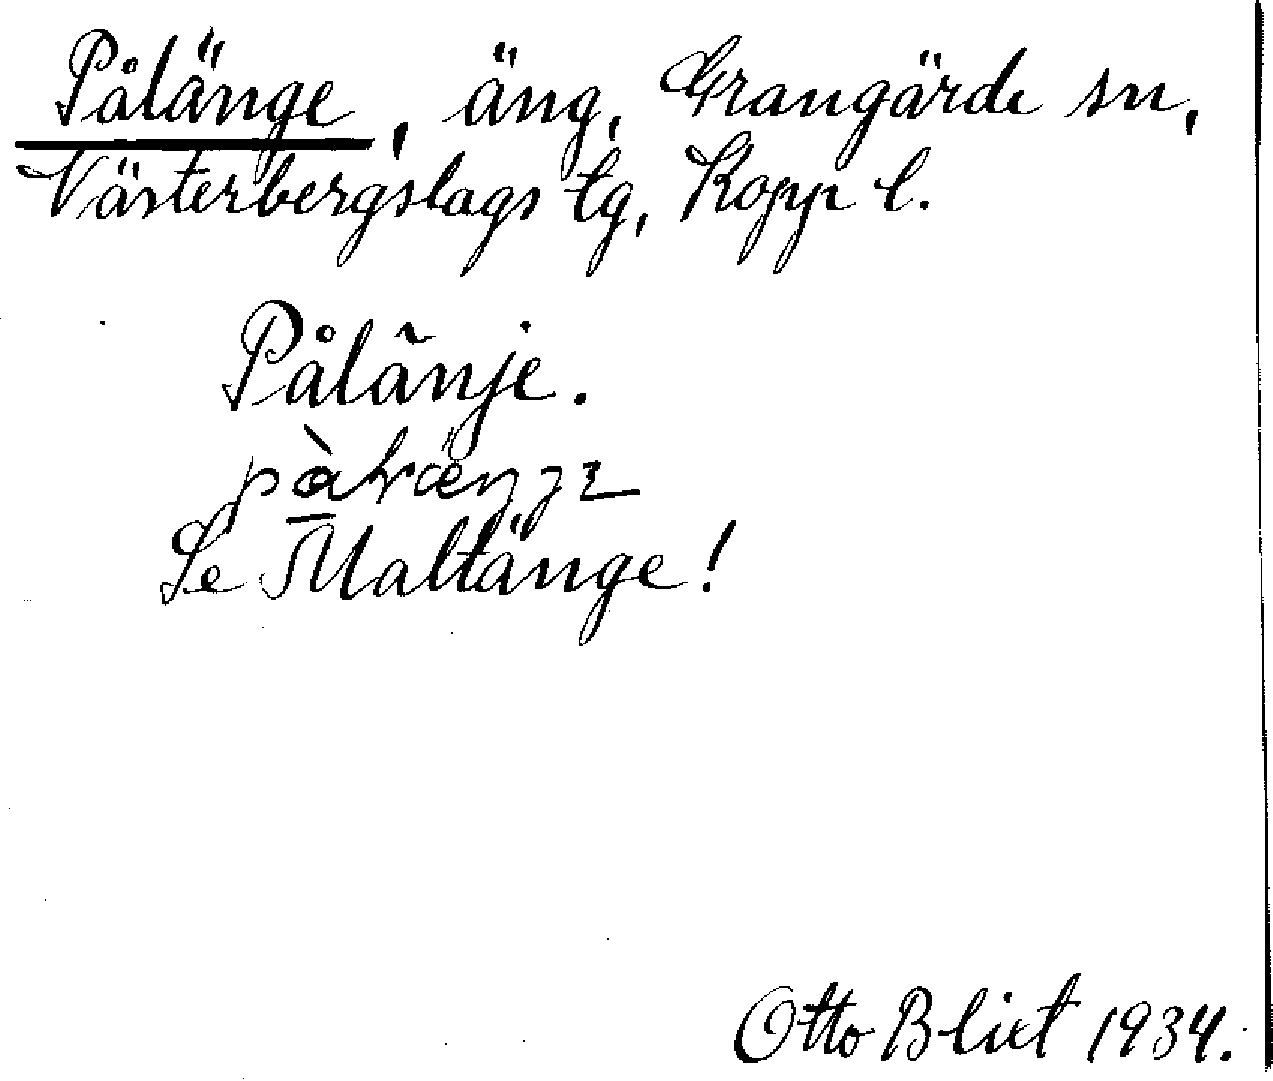 Pålänge, äng, Grangärde sn,
Västerbergslags tg, Kopp l.
Pålänje.
Se Maltänge!
Otto Blixt 1934.